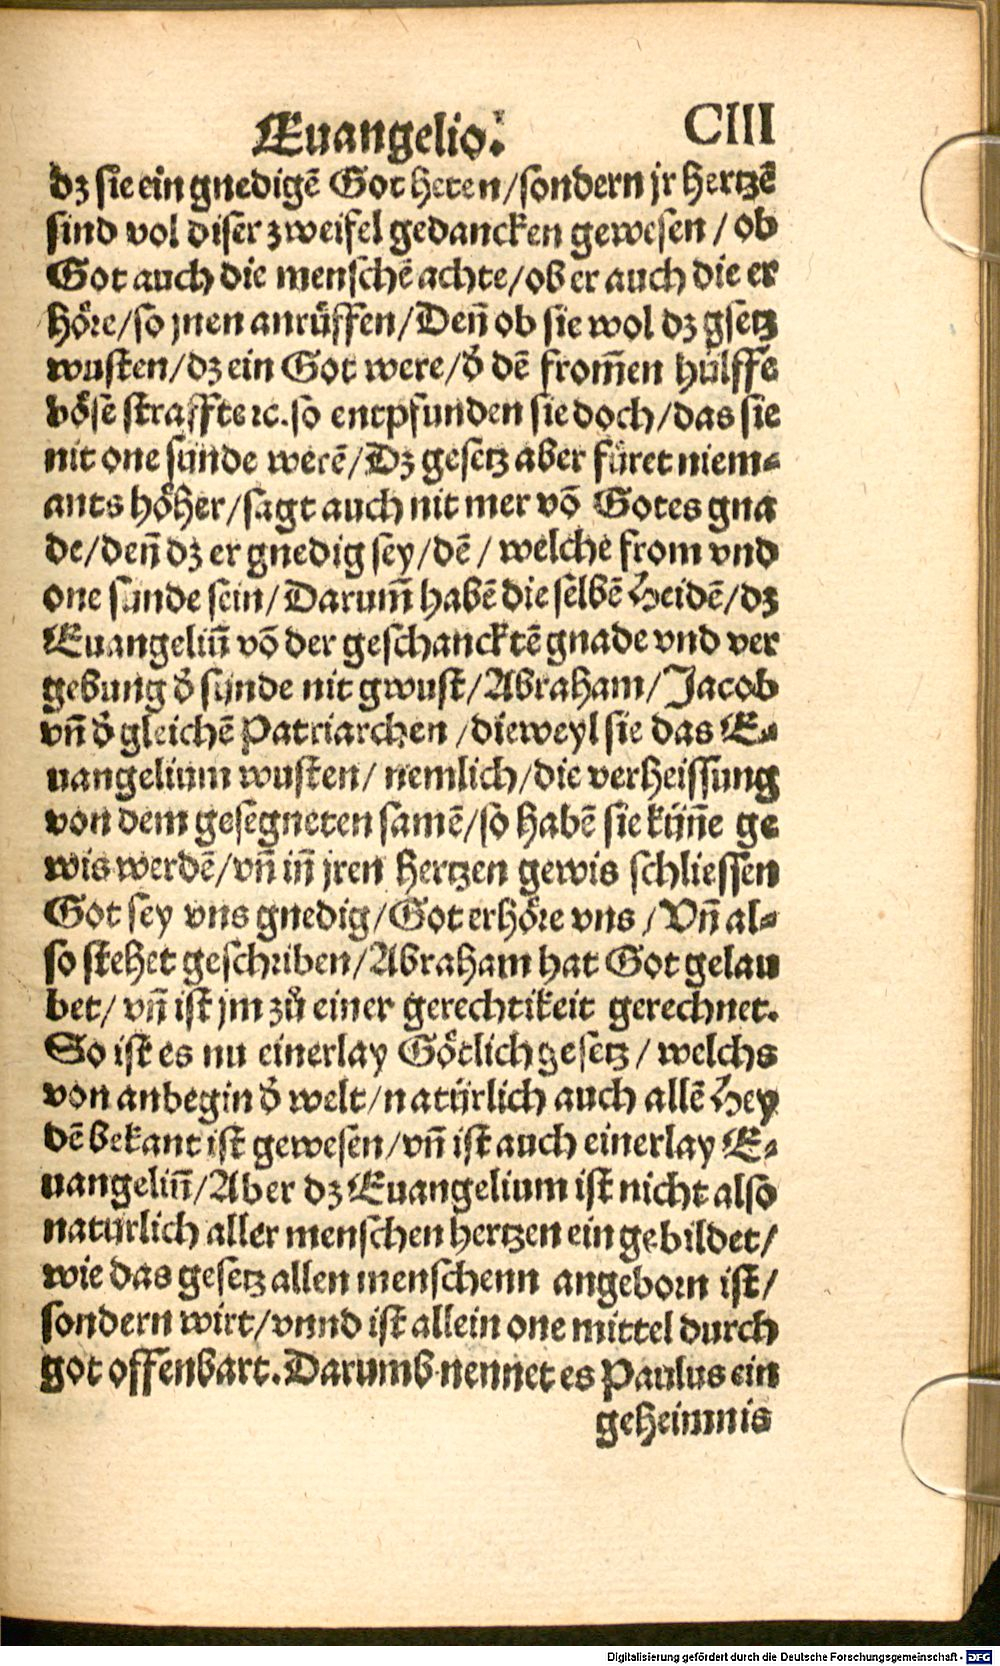 Euangelio.
CIII
dz sie ein gnedigē Got heten/sondern jr hertzē
sind vol diser zweifel gedancken gewesen / ob
Got auch die menschē achte/ob er auch die er
höre/so jnen anrüffen/Deñ ob sie wol dz gsetz
wusten/dz ein Got were/d̕ dē from̄en hülffe
böse straffte ꝛc. so entpfunden sie doch/das sie
nit one sünde werē/Dz gesetz aber füret niem-
ants höher/sagt auch nit mer vō Gotes gna
de/deñ dz er gnedig sey/dē / welche from vnd
one sünde sein/Darum̄ habē die selbē Heidē/dz
Euangeliū vō der geschancktē gnade vnd ver
gebung d̕ sünde nit gwust/Abraham/Jacob
vñ d̕ gleichē Patriarchen /dieweyl sie das E-
uangelium wusten/ nemlich/die verheissung
von dem gesegneten samē/so habē sie küñe ge
wis werdē/vñ iñ jren hertzen gewis schliessen
Got sey vns gnedig/Got erhöre vns /Vñ al-
so stehet geschriben/Abraham hat Got gelau
bet/ vñ ist jm zů einer gerechtikeit gerechnet.
So ist es nu einerlay Götlich gesetz/ welchs
von anbegin d̕ welt/natürlich auch allē Hey
dē bekant ist gewesen/vñ ist auch einerlay E-
uangeliū/Aber dz Euangelium ist nicht also
natürlich aller menschen hertzen ein gebildet/
wie das gesetz allen menschenn angeborn ist/
sondern wirt/vnnd ist allein one mittel durch
got offenbart. Darumb nennet es Paulus ein
geheimnis
Digitalisierung gefördert durch die Deutsche Forschungsgemeinschaft - DFG